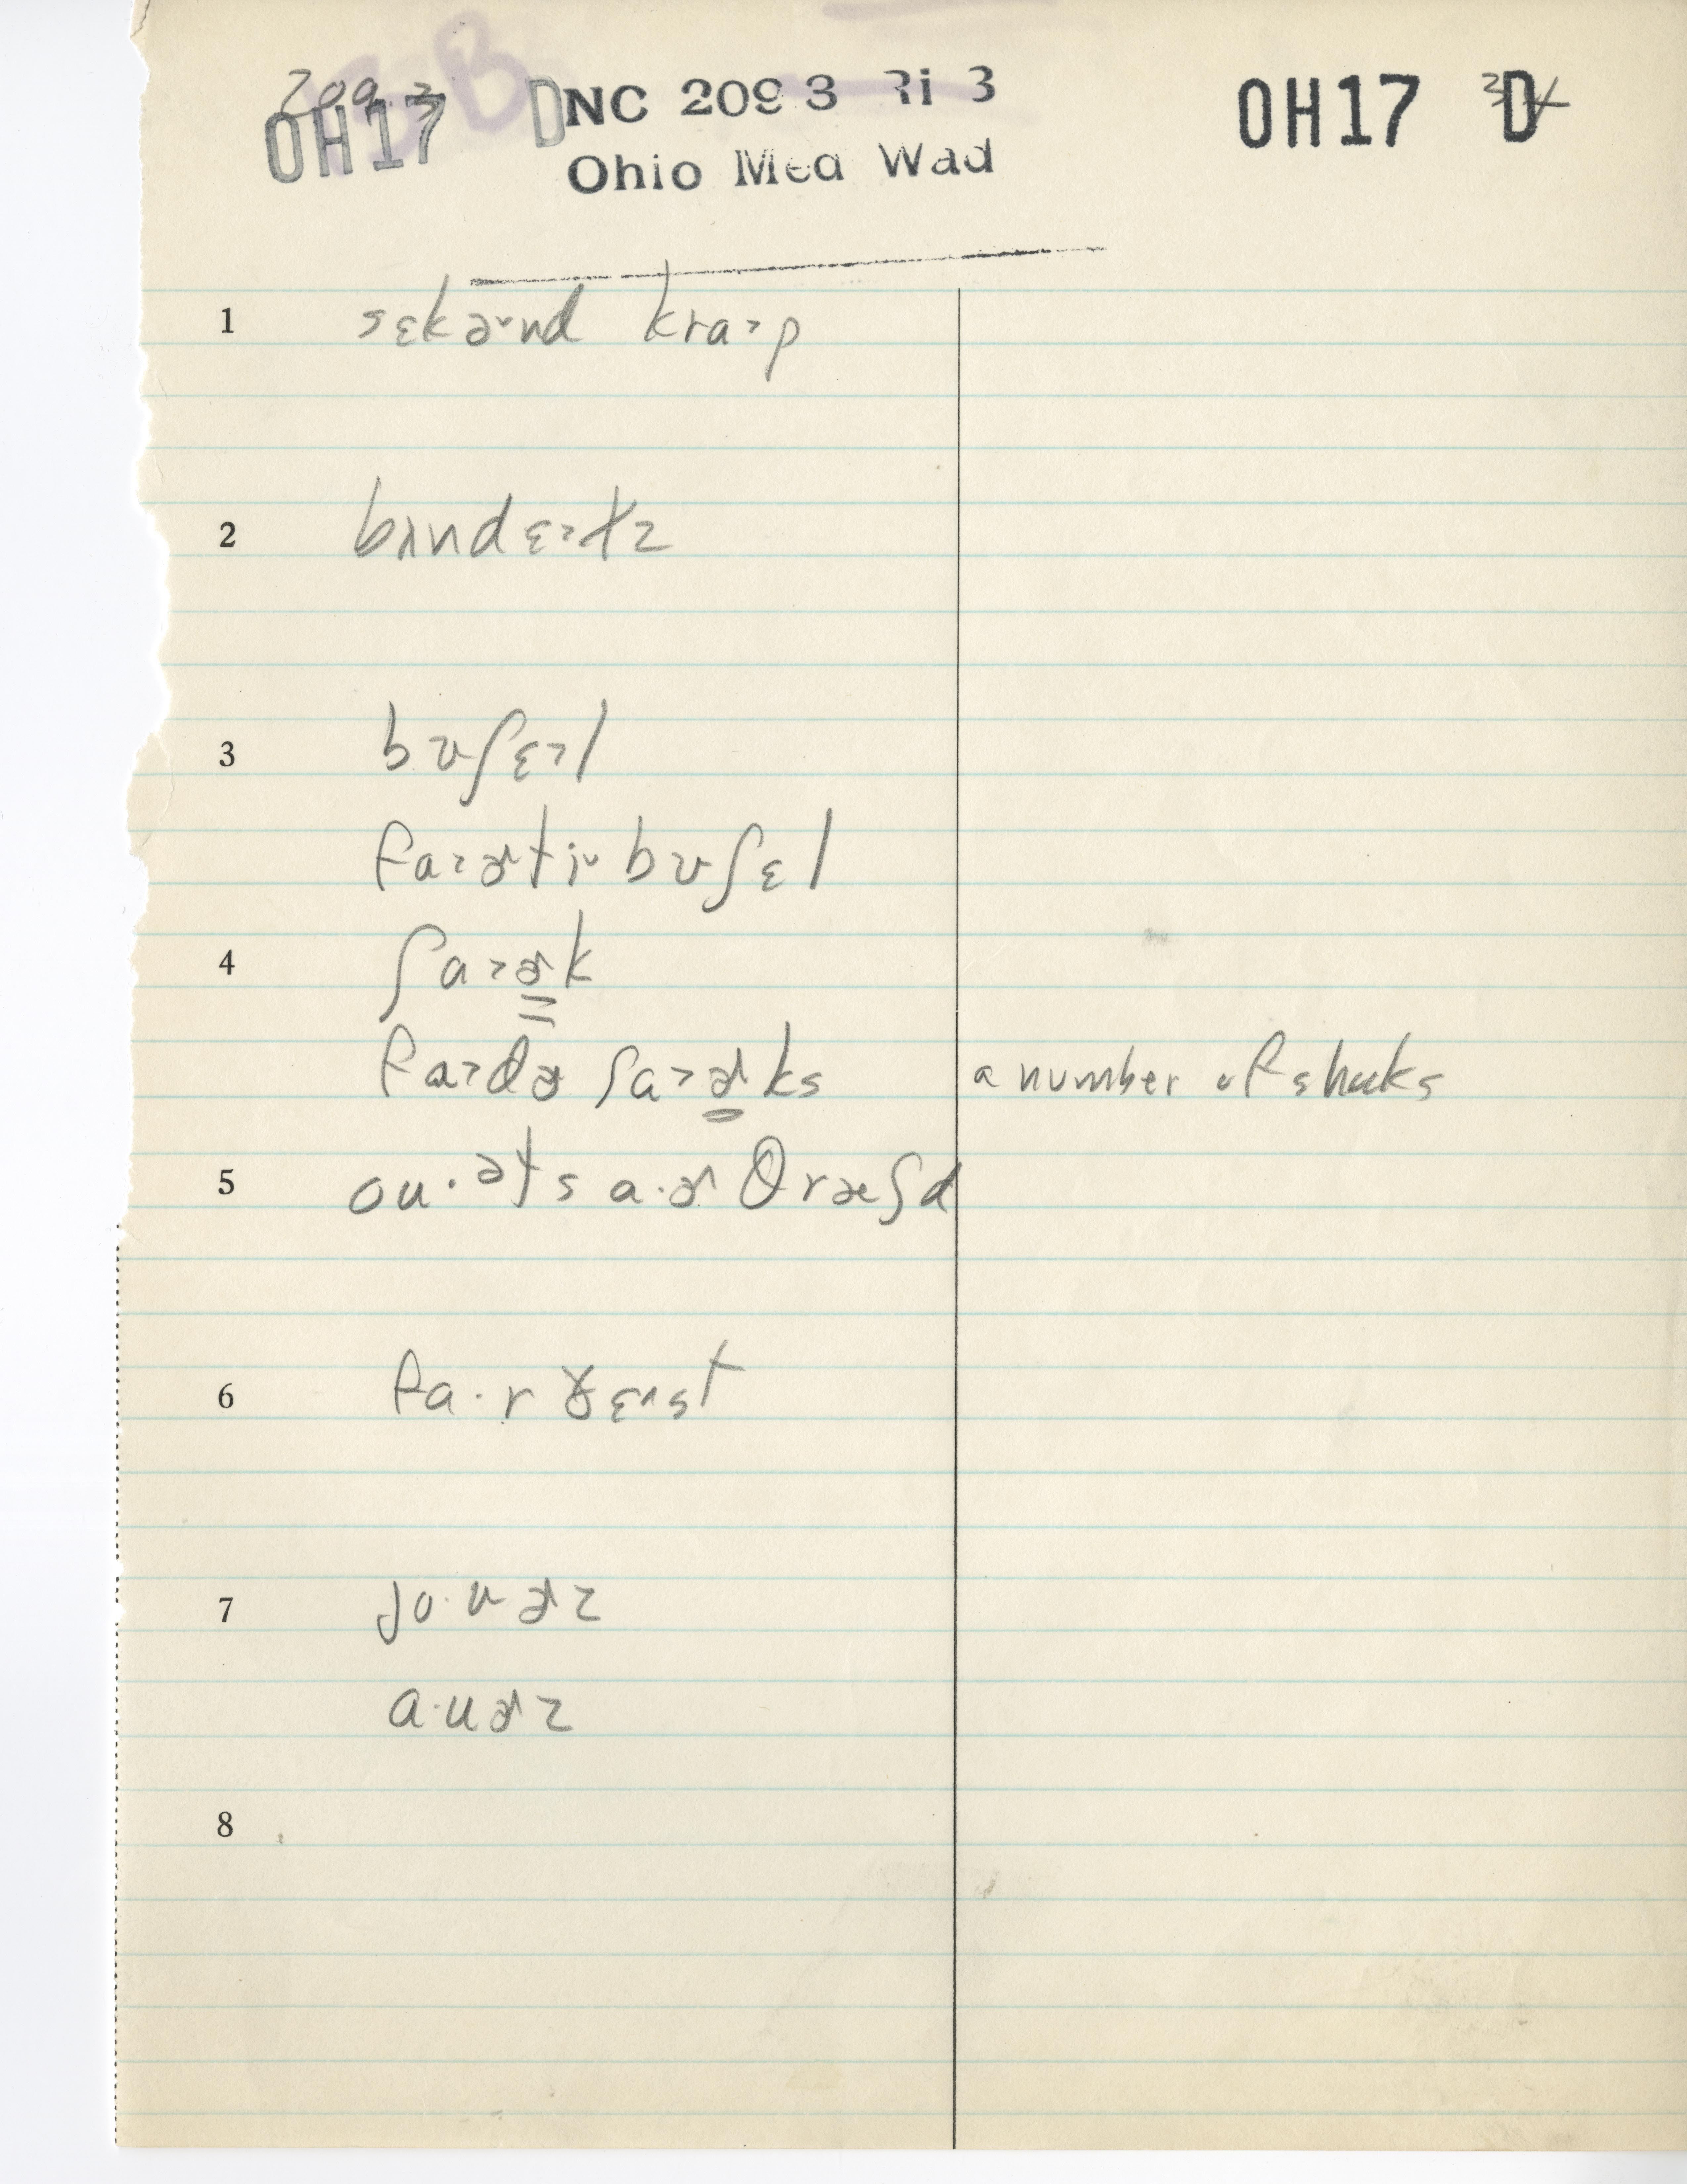 2093
OH17 D
NC 2093 Ri 3
Ohio Med Wad
OH17 D
1 sɛkə˅nd kra˃p
2 bɪnd ɛ˃tz
3 bʊʃɛ˃l
fa˃ɚti˅ bʊʃɛl
4 ʃa˃ɚk
fa˃də ʃa˃ɚks a number of shocks
5 ou·əts a·ɚ θræʃd
6 fa·r ɣɛ˄st
7 jo·ʊɚz
a·uɚz
8